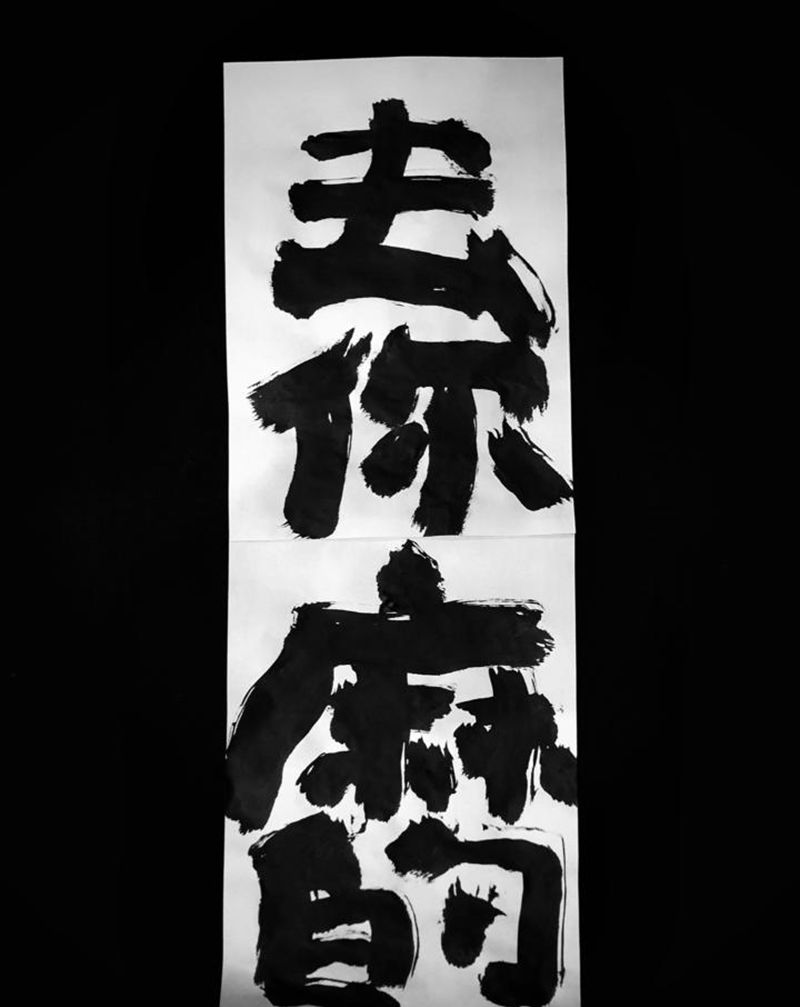 去你麻的